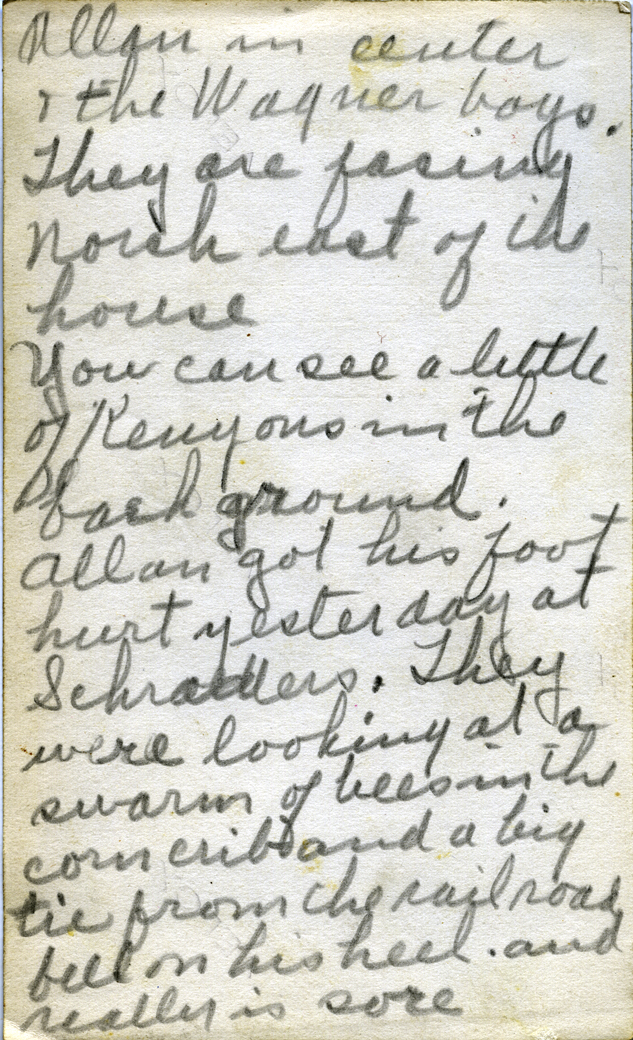 Allan in center
& the Wagner boys.
They are facing
North east of the
house
You can see a little
of Kenyons in the
back ground.
Allan got his foot
hurt yesterday at
Schraeders. They
were looking at a
swarm of bees in the
corn crib and a big
tie from the rail road
fell on his heel. and
really is sore